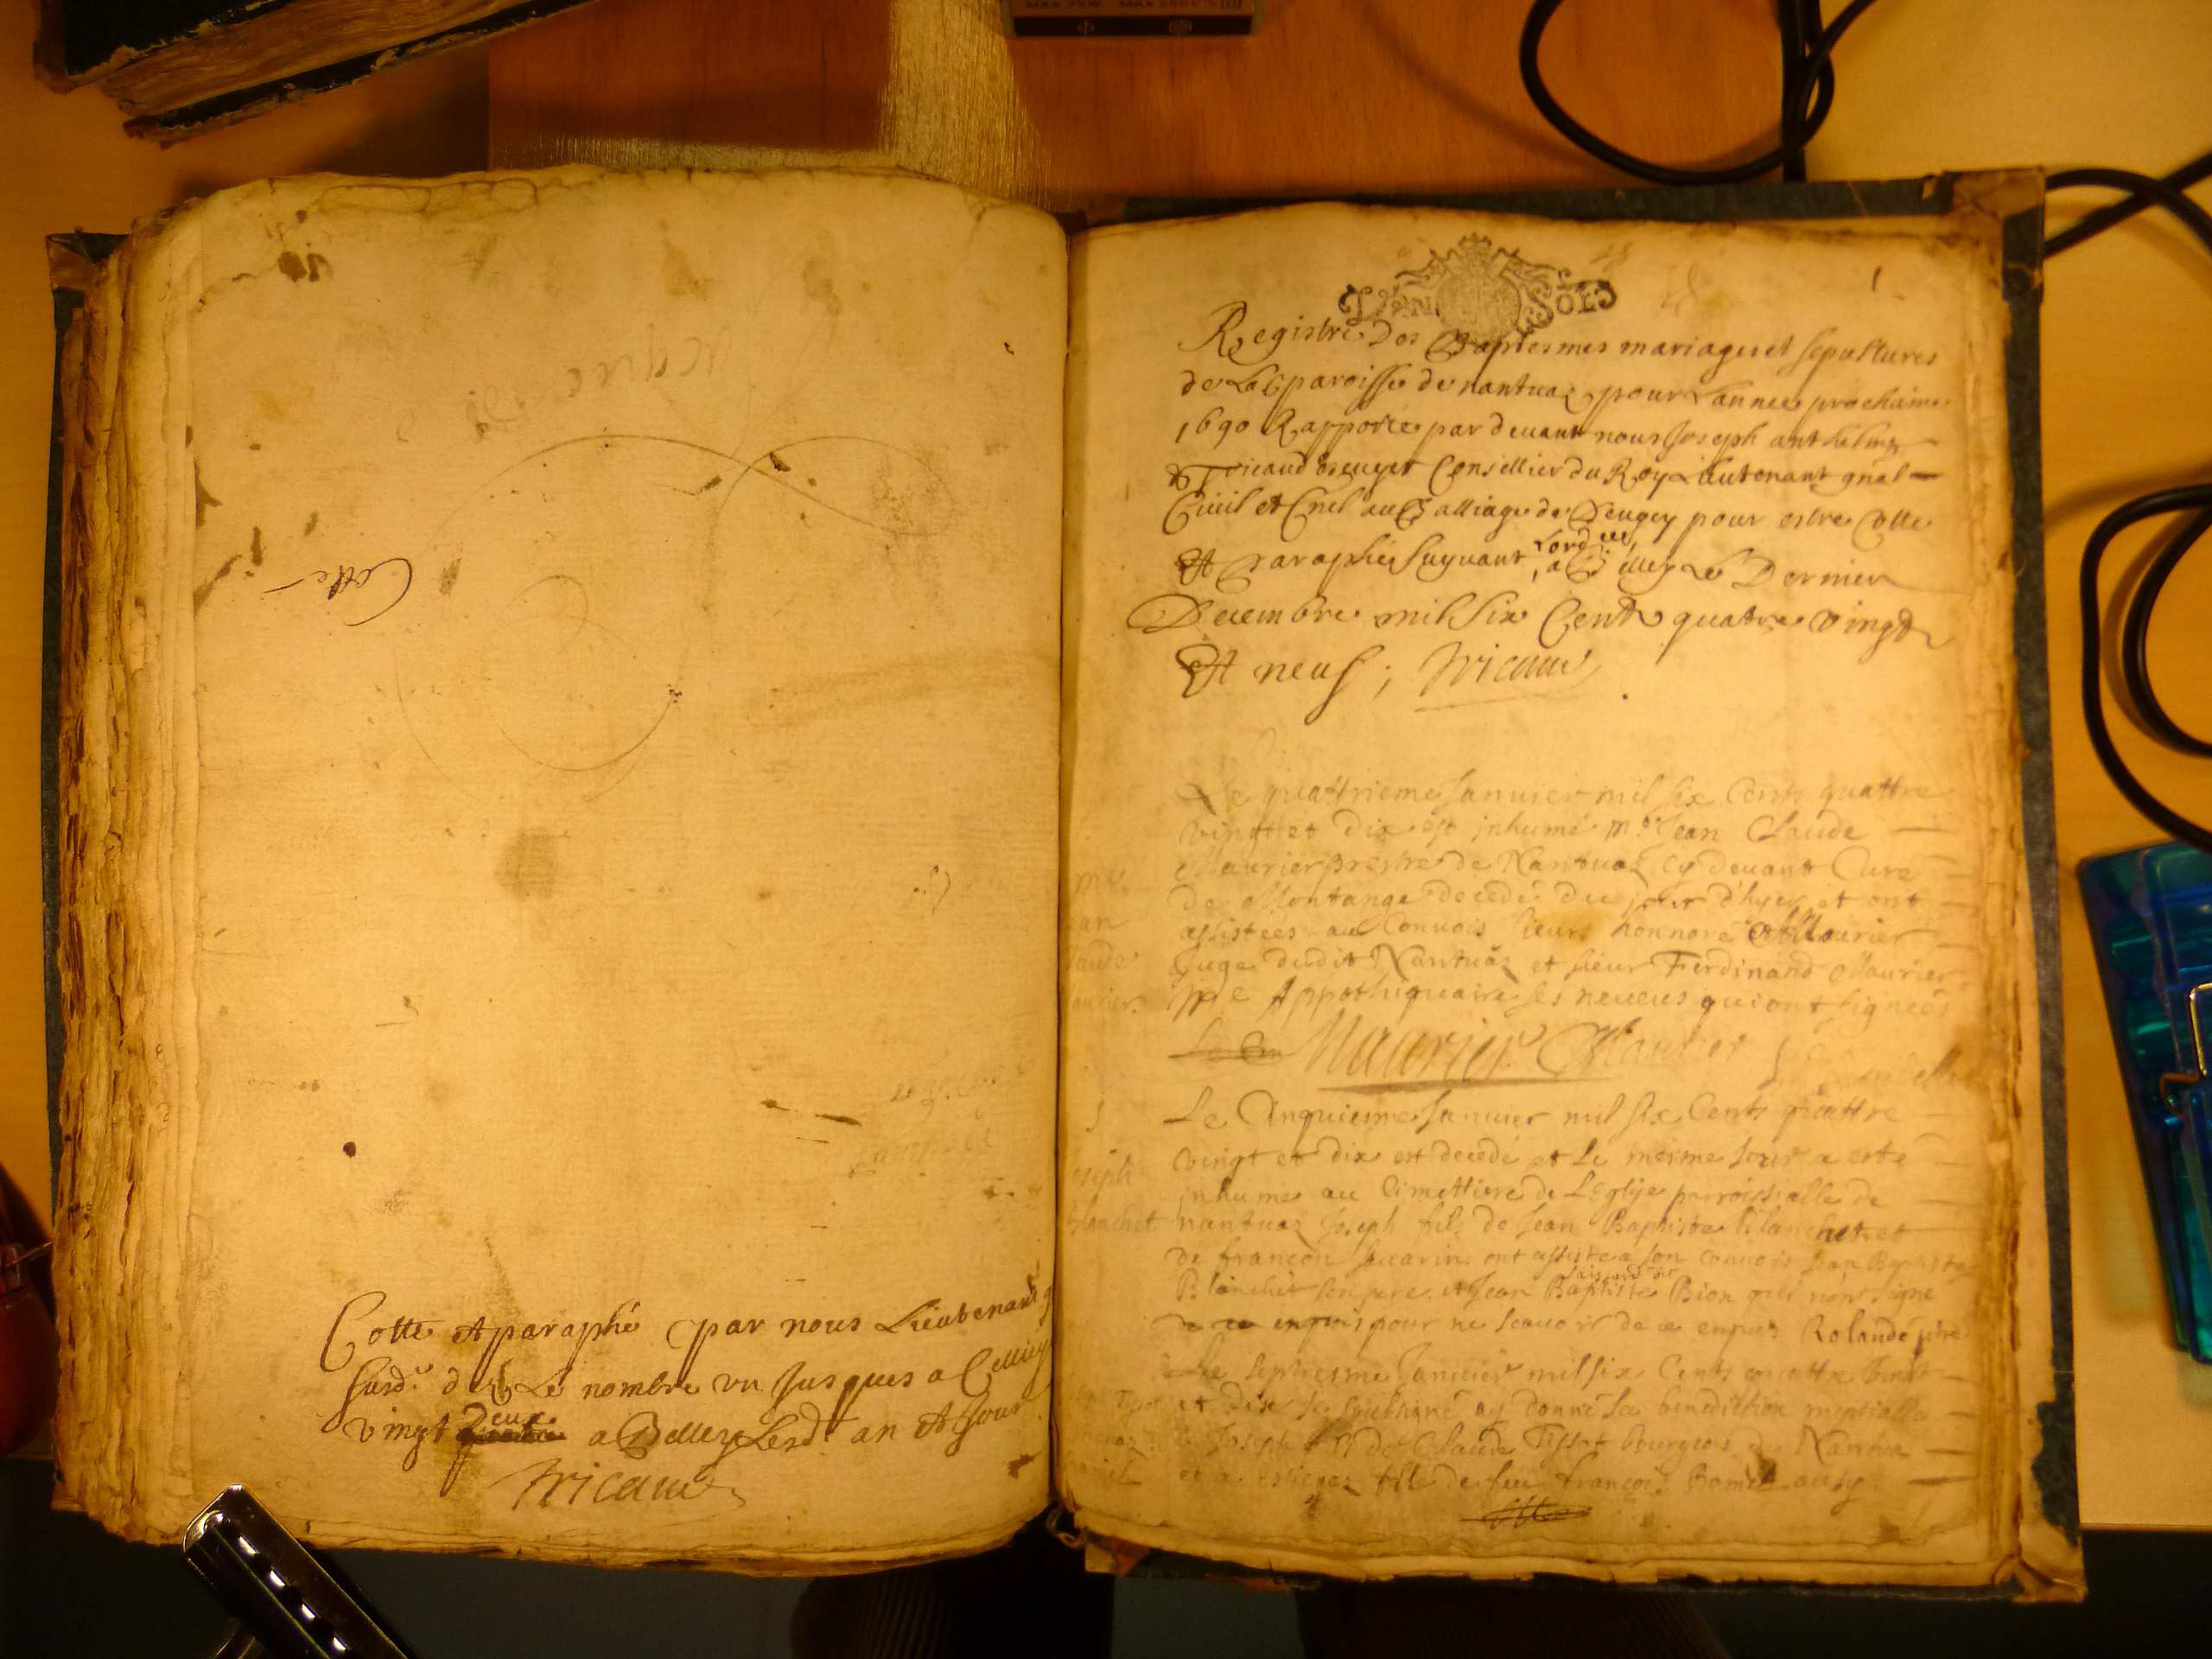 Cotte
Cotte et paraphé par nous Lieutenant g
susd. le nombre un Jusques a Celluy
vingt deux a Belley Lesd. an et Jour
Tricaud
1
SOLS
Registre Des Baptesmes mariages et sepultures
de La paroisse de nantuaz pour L'annee prochaine
1690 Rapporté par devant nous Joseph anthelme
de Tricaud escuyer Conseillier du Roy Lieutenant gnal
Civil et Cnel au Balliage de Beugey pour estre Cotte
Et Paraphé suyvant Lord.ce, a Belley Le Dernier
Decembre mil Six Cent quatre vingt
Et neuf ; Tricaud
Le quattrieme Januier mil six Cents quattre
vingt et dix est inhumé m.re Jean Claude
Maurier prestre de Nantuaz cy devant Cure
de Montange decedé du jour d'hyer et ont
assistées au Convois sieurs honnoré Maurier
Juge dudit Nantuaz et sieur Ferdinand Maurier
me Appothiquaire ses neveus qui ont signées
Maurier Maurier
5
Le Cinquiesme Januier mil six Cents quattre
vingt et dix est decedé et Le mesme Jour a esté
inhume au Cimettiere de L'Eglise parroissialle de
Joseph
Blanchet
nantuaz Joseph fils de Jean Baptiste Blanchet et
de françoise Savarin ont assisté a son convois Jean Baptiste
Blanchet son pere et Jean Baptiste Bion qui n'ont signe
pour ne scavoir de ce enquis Rolande ptre
Le septiesme Januier mil six Cents quattre vingt
et dix Je soubsigné ay donné La benediction nuptialle
a Joseph fils de Claude Tissot Bourgeois de Nantua
et a fille de feu françois Bomel aussy